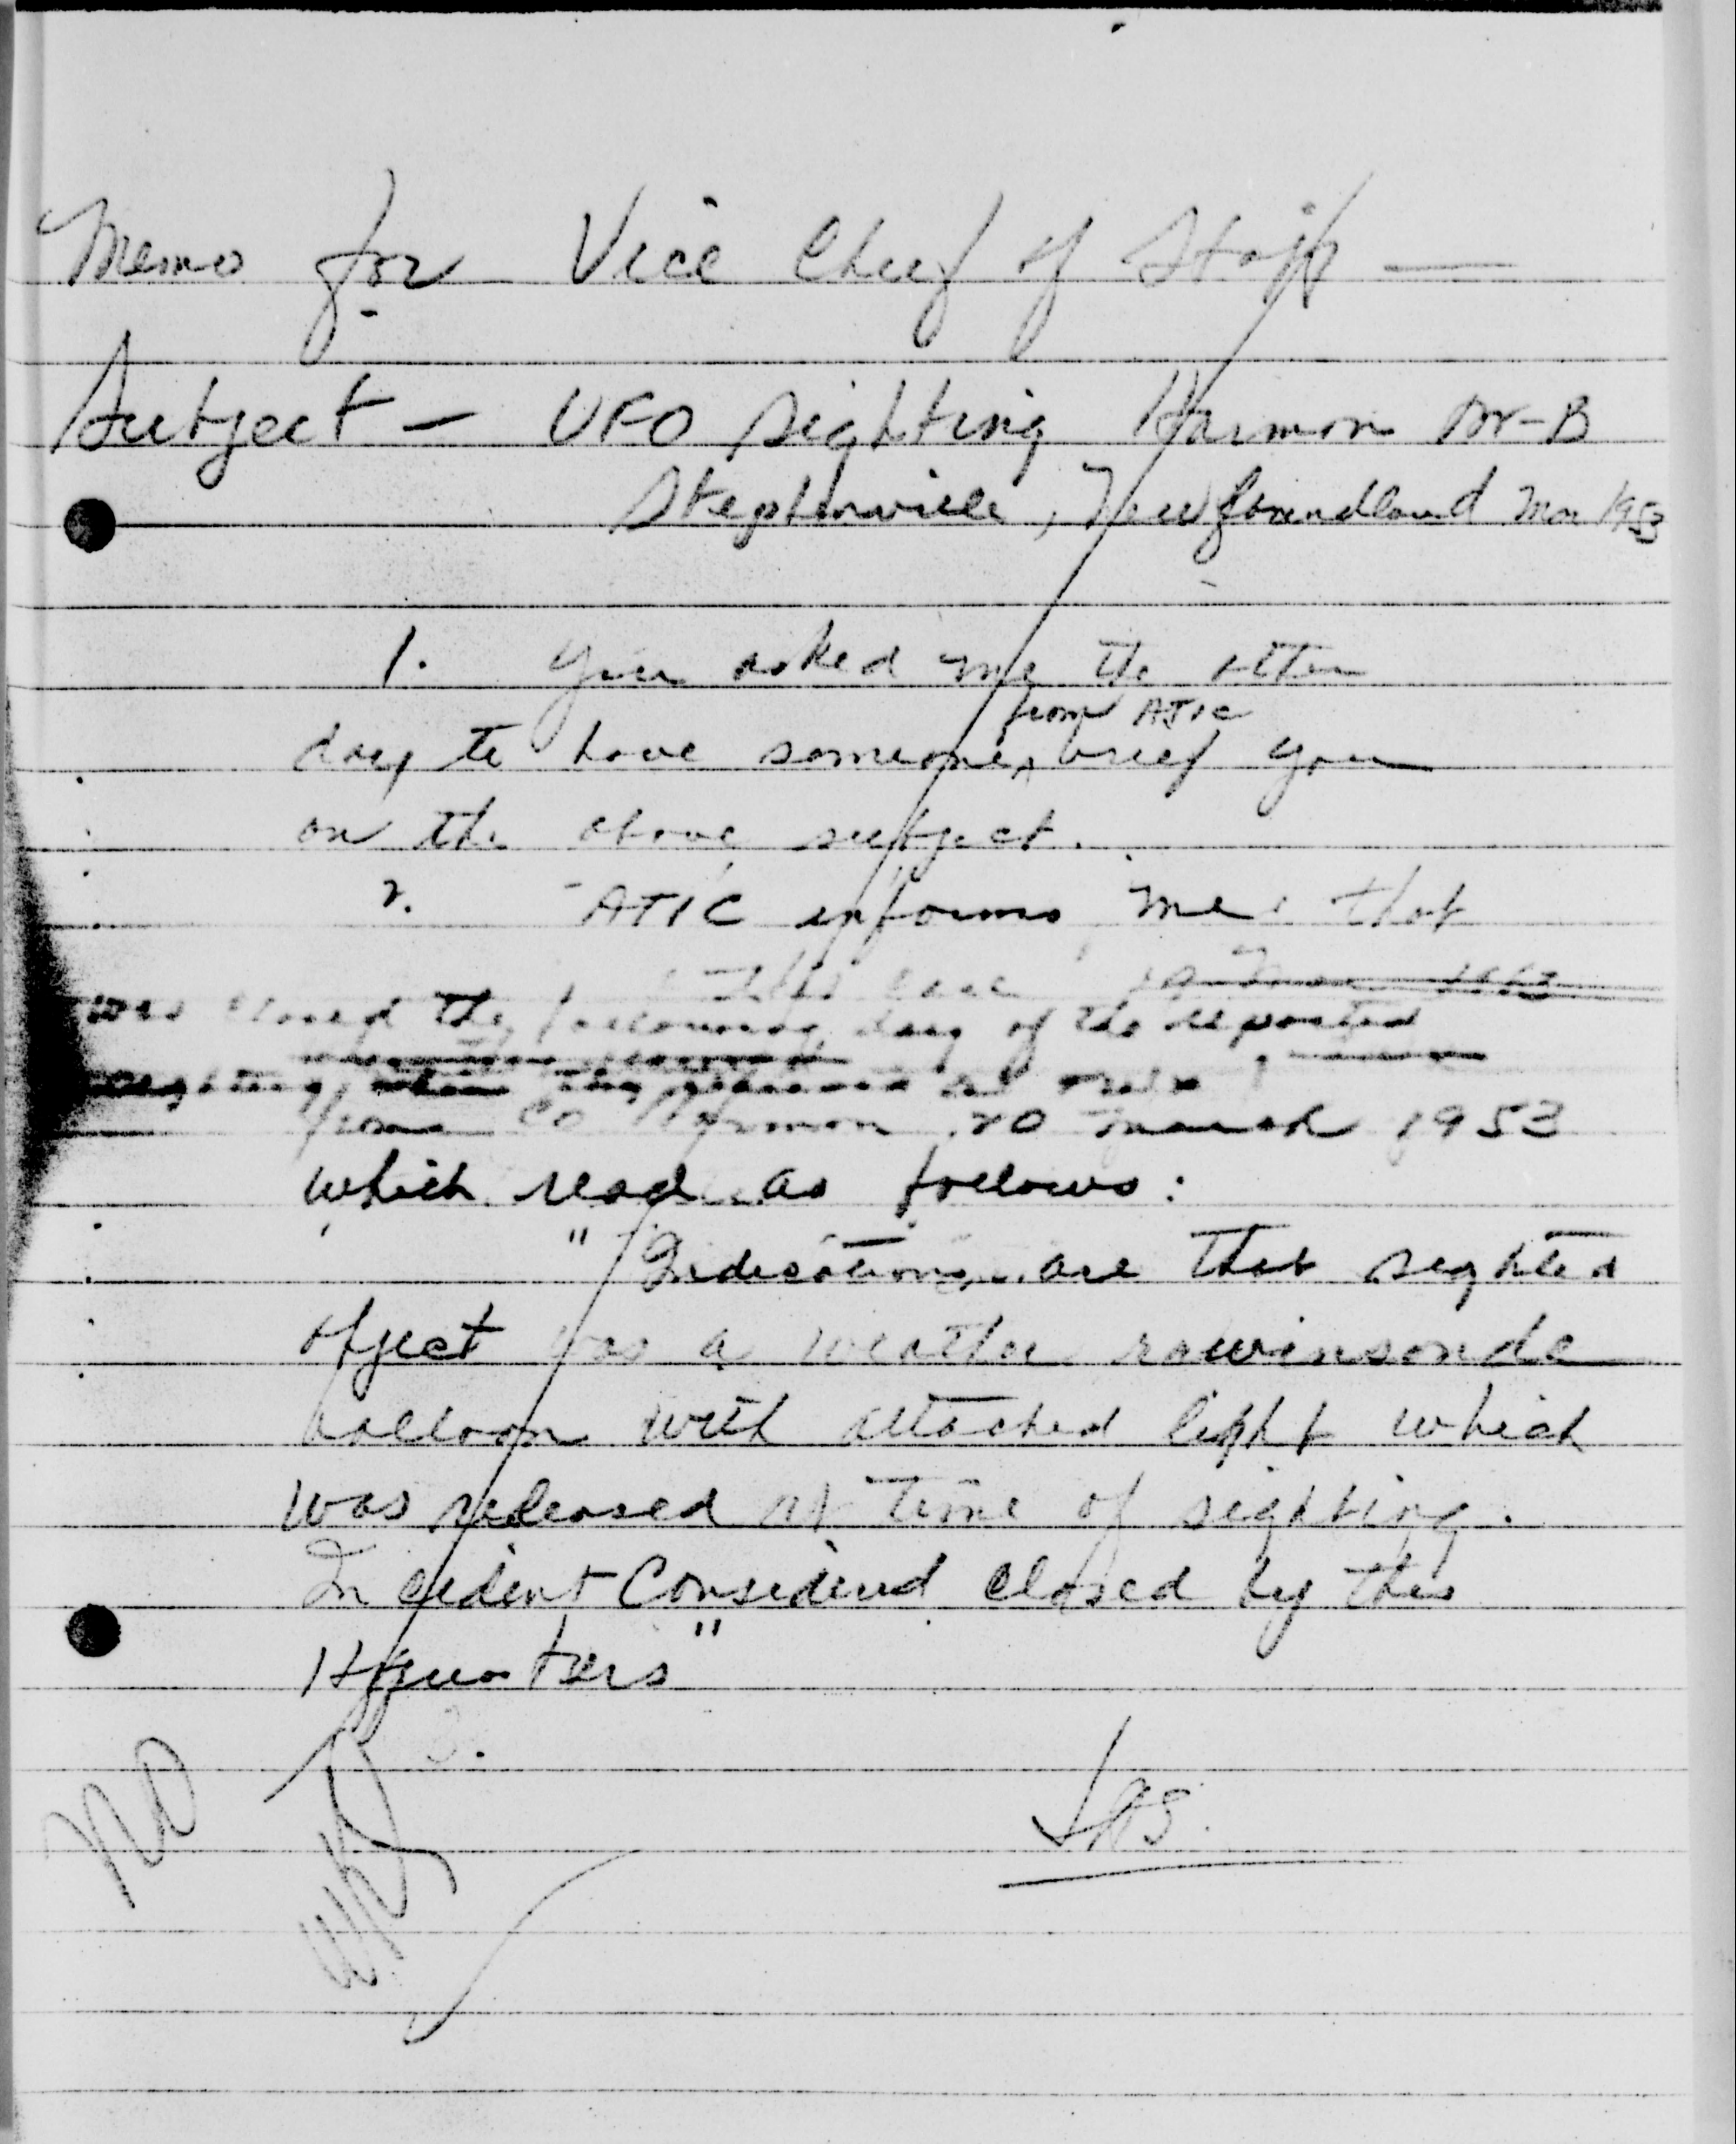 Memo for Vice Chief of Staff —
Subject — UFO Sighting Harmon AF-B
Stephenville, Newfoundland Mar 1953
1. You asked me the other
from ATIC
day to have someone ^ brief you
on the above subject.
2. ATIC informs me that
this case
was closed the following day of the reported
sighting,
from CO Harmon 20 March 1953
which read as follows:
"Indications are that sighted
object was a weather rawinsonde
balloon with attached light which
was released at time of sighting.
Incident Considered closed by this
Hqurters"
3.
NO
JAS.